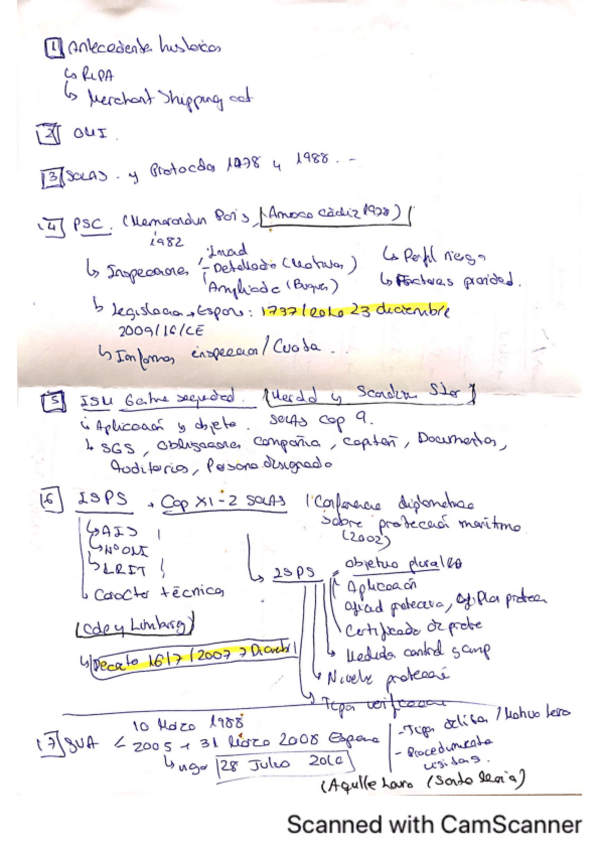 1 Antecedentes historicos
↳ RIPA
↳ Merchant Shipping act
2 OMI.
3 SOLAS. y Protocolo 1978 y 1988. -
4 PSC. (Memorandun Paris, (Amoco cádiz 1978)
1982
↳ Inspecciones
Inicial
- Detallado (Motivos)
Ampliada (Buques)
↳ Perfil riesgo
↳ Factores prioridad.
↳ Legislacion → España: 1737/2010 23 diciembre
2009/16/CE
↳ Informes inspeccion /
5 ISM Gestion seguridad. (Herald y Scandin Star)
↳ Aplicación y objeto. SOLAS Cap 9.
↳ SGS, Obligaciones Compañia, Capitan, Documentos,
Auditorias, Persona designada
6 ISPS → Cap XI-2 SOLAS (Conferencia diplomatica
sobre protección maritima
(2002)
↳ AIS
↳ Nº OMI
↳ LRIT
↳ Caracter técnica
↳ ISPS
objetivo
Aplicación
Ofiad protección, Of Plan protecc
Certificado de protec
Medida control
Niveles protección
Tipos verificacion
(Cole y Limburg)
↳ Decreto 1617/2007 7 Diciembre
7 SUA < 10 Marzo 1988
2005 → 31 Marzo 2008 España
↳ vigor 28 Julio 2010
- Tipos delitos /
- Procedimientos
visitas.
(Aquille Lauro (Santa Maria)
Scanned with CamScanner